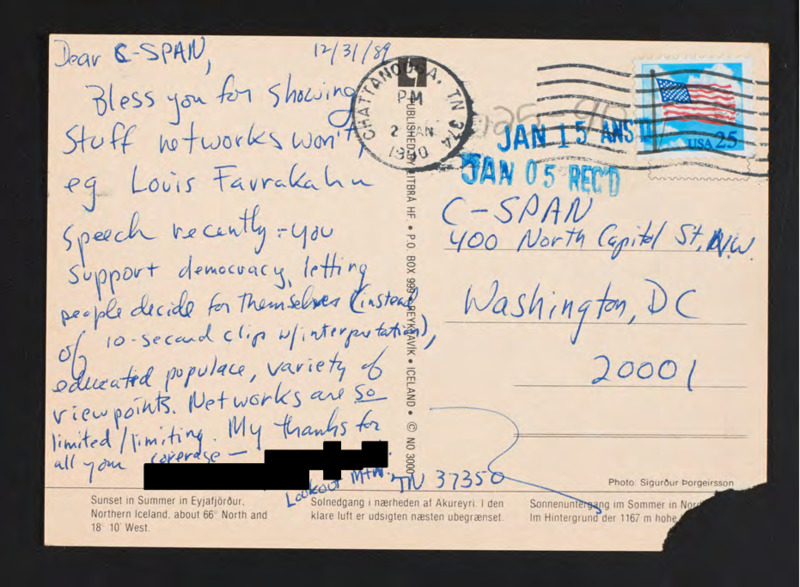 Dear C-SPAN,
12/31/89
Bless you for showing
stuff networks won't,
eg Louis Farrakahn
speech recently - you
support democracy, letting
people decide for themselves (instead
of 10-second clip w/interpretation),
educated populace, variety of
viewpoints. Networks are so
limited/limiting. My thanks for
all your coverage —
Lookout Mtn. TN 37350
CHATTANOOGA, TN 374
PM
2 JAN
1990
USA 25
JAN 15 ANS'D
JAN 05 REC'D
C-SPAN
400 North Capitol St, N.W.
Washington, DC
20001
PUBLISHED BY LITBRÁ HF. • P.O. BOX 999 • REYKJAVÍK • ICELAND • © NO 3000
Photo: Sigurður Þorgeirsson
Sunset in Summer in Eyjafjörður.
Northern Iceland. about 66° North and
18° 10' West.
Solnedgang i nærheden af Akureyri. I den
klare luft er udsigten næsten ubegrænset.
Sonnenuntergang im Sommer in
Im Hintergrund der 1167 m hohe